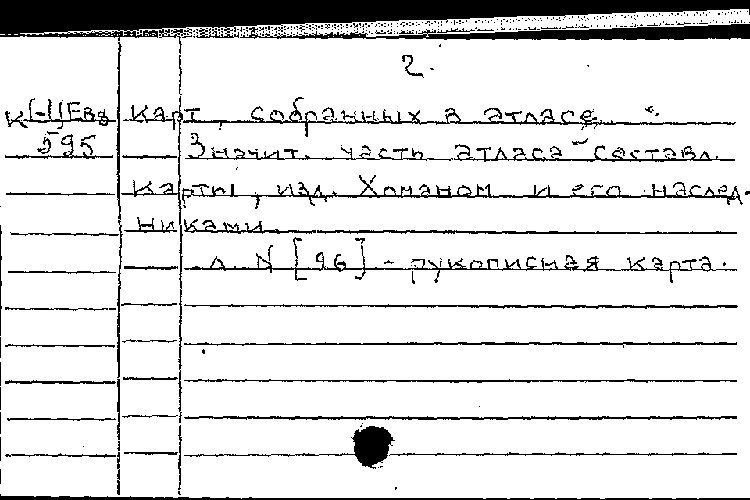 2.
К[-I]Евз карт, собранных в атласе.
595 Значит. часть атласа составл.
карты, изд. Хоманом и его наслед-
никами.
л. N [96] - рукописная карта.